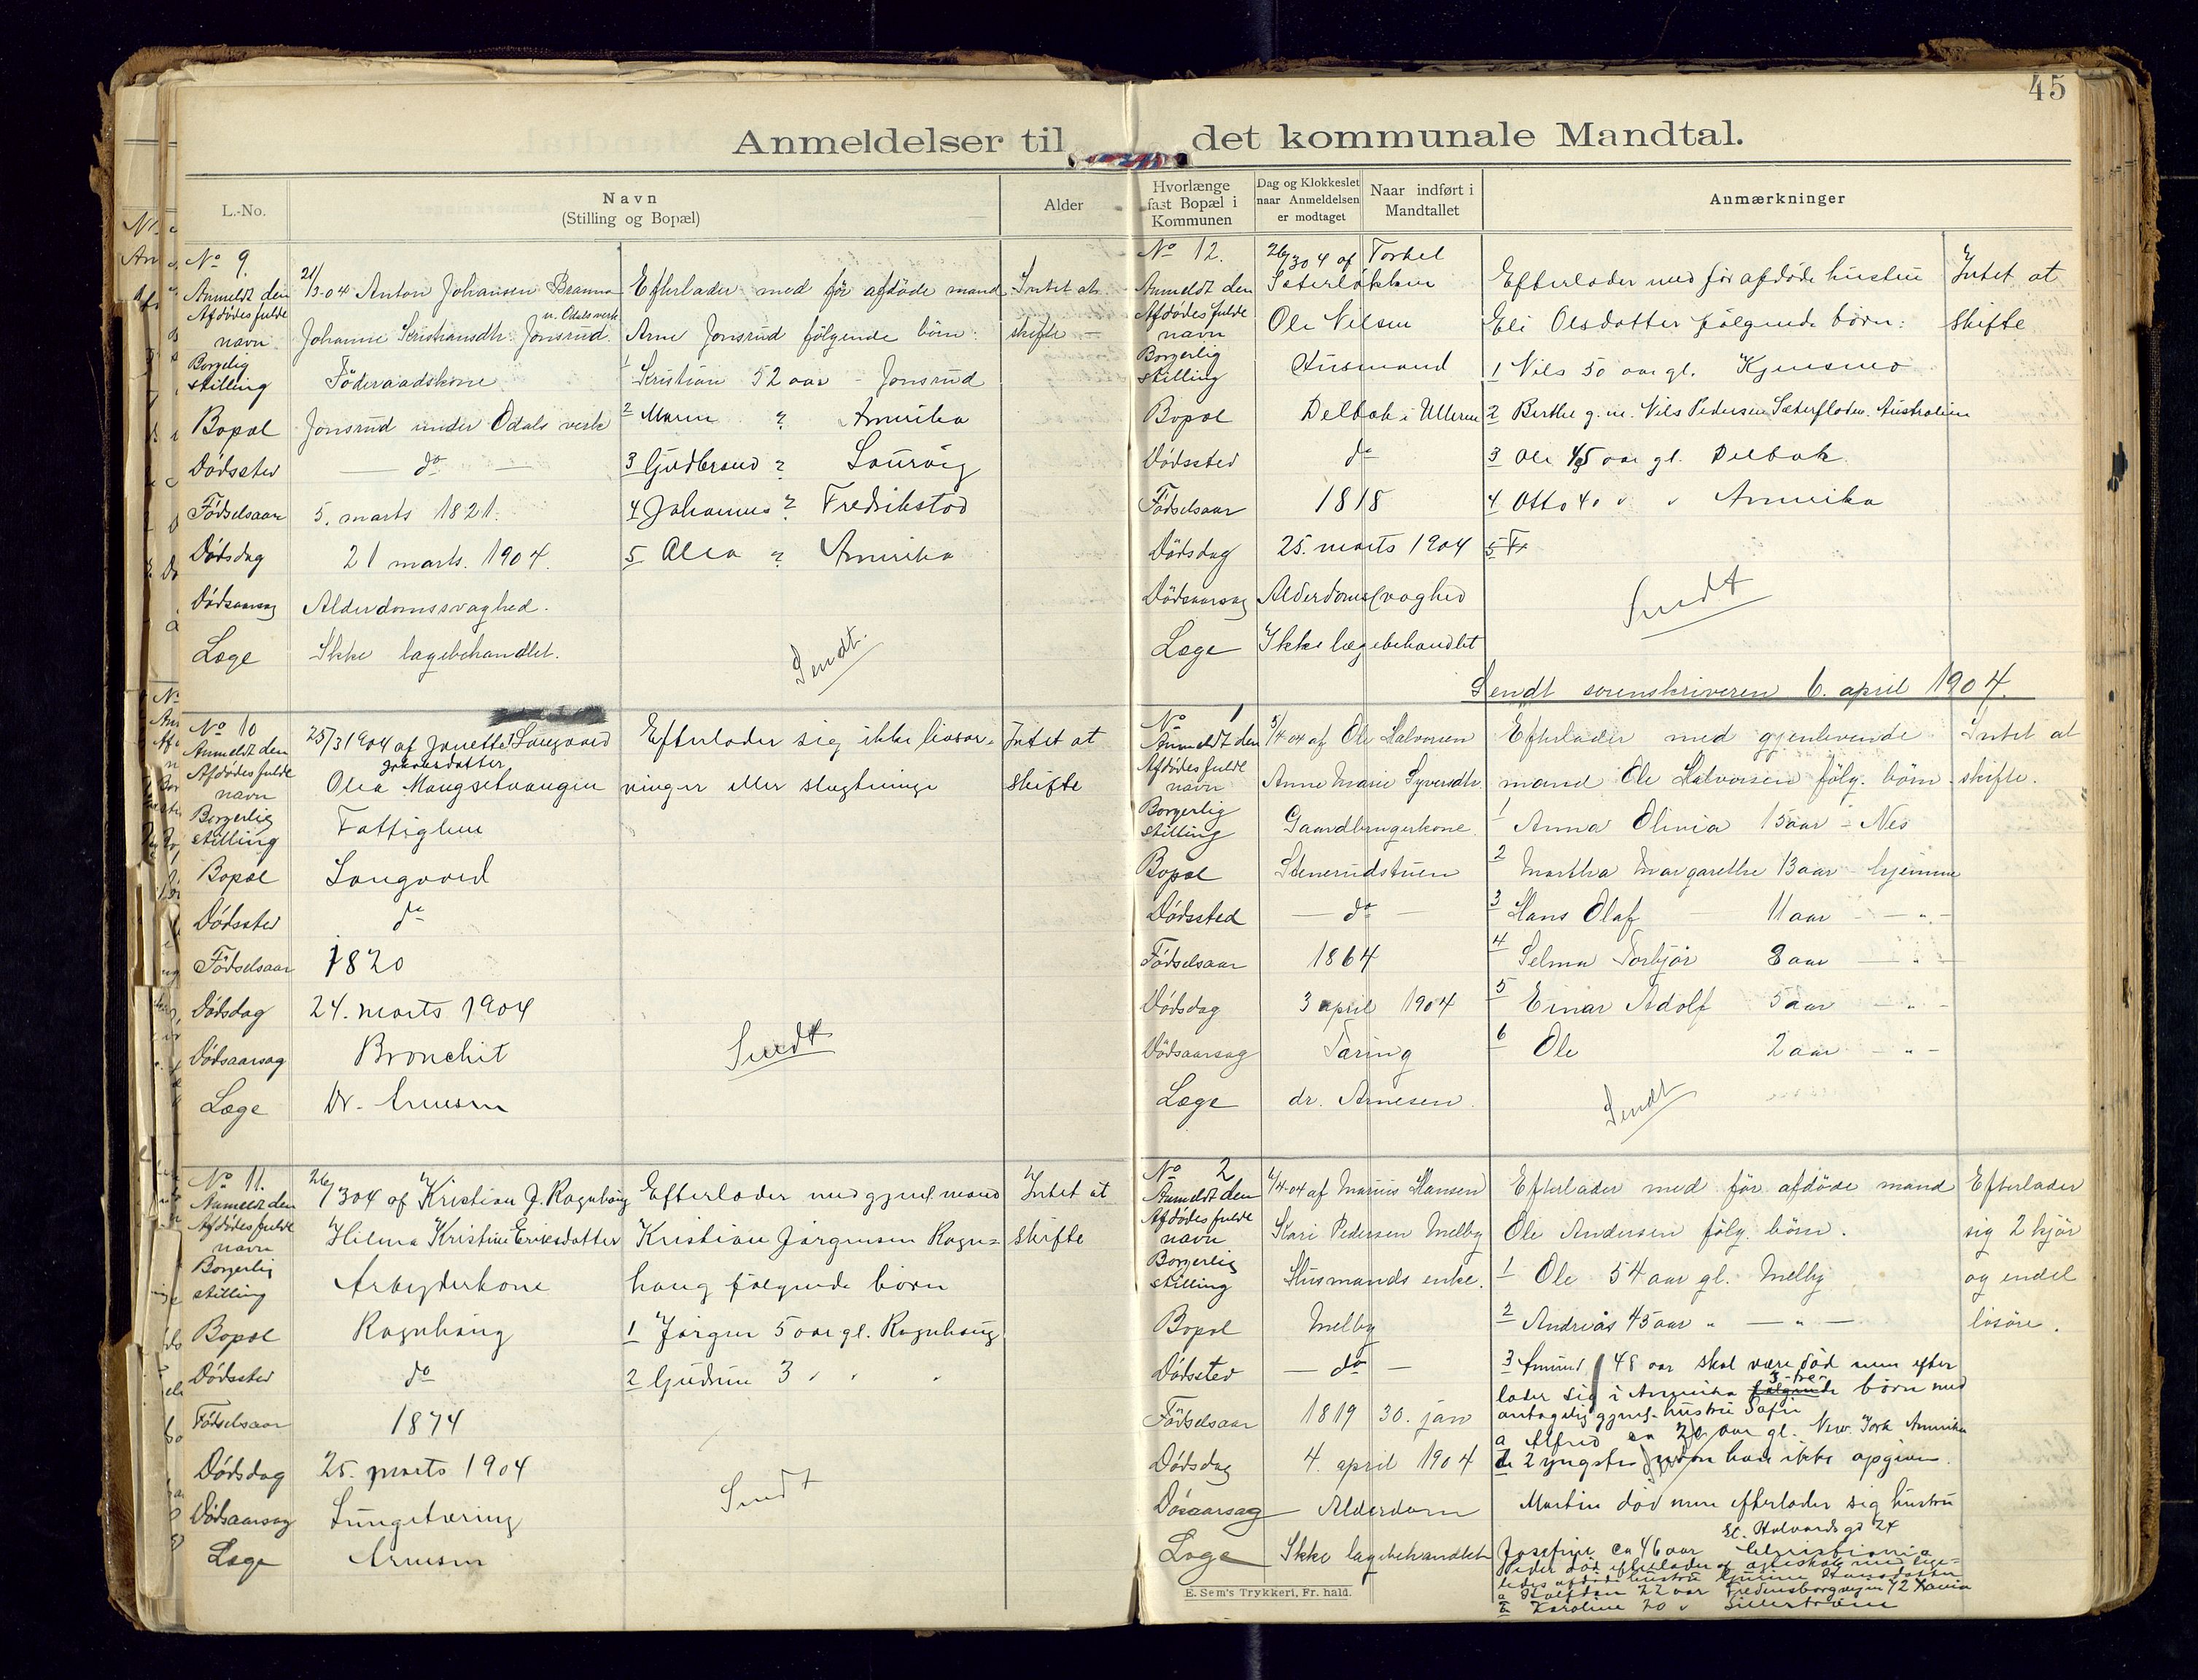 45
Anmeldelser til det kommunale Mandtal.
L.-No.
Navn
(Stilling og Bopæl)
Alder
Hvorlænge
fast Bopæl i
Kommunen
Dag og Klokkeslet
naar Anmeldelsen
er modtaget
Naar indført i
Mandtallet
Anmærkninger
No 9.
Anmeldt den 21/3-04 Anton Johansen Branna
u. Odals verk
Afdødes fulde
navn Johanne Kristiansdtr. Jonsrud.
Borgerlig
stilling Föderaadskone
Bopæl Jonsrud under Odals verk
Dødssted do
Fødselsaar 5. marts 1821.
Dødsdag 21 marts. 1904.
Dødsaarsag Alderdomssvaghed.
Læge Ikke lægebehandlet.
Efterlader med før afdöde mand
Arne Jonsrud følgende börn:
1 Kristian 52 aar - Jonsrud
2 Maren ? Amerika
3 Gudbrand ? Laurvig
4 Johannes ? Fredrikstad
5 Olea ? Amerika
Sendt.
Intet at
skifte
No 10
Anmeldt den 25/3 1904 af Jonette Langaard
Afdødes fulde
navn Olea Mangsetvangen
Borgerlig
stilling Fattiglem
Bopæl Langaard
Dødssted do
Fødselsaar 1820
Dødsdag 24. marts 1904
Dødsaarsag Bronchit
Læge Dr. Arnesen
Efterlader sig ikke livsar-
vinger eller slegtninge
Sendt
Intet at
skifte
No 11.
Anmeldt den 26/3 04 af Kristian J. Ragnhaug
Afdødes fulde
navn Hilma Kristine Eriksdatter
Borgerlig
stilling Arbeyderkone
Bopæl Ragnhaug
Dødssted do
Fødselsaar 1874
Dødsdag 25. marts 1904
Dødsaarsag Lungetæring
Læge Arnesen
Efterlader med gjenl. mand
Kristian Jørgensen Ragn=
haug følgende børn
1 Jørgen 5 aar gl. Ragnhaug
2 Gudrun 3 " " "
Sendt
Intet at
skifte
No 12.
Anmeldt den 26/3 04 af Torkel
Sæterløkken
Afdødes fulde
navn Ole Nilsen
Borgerlig
stilling Husmand
Bopæl Delbak i Ullern
Dødssted do
Fødselsaar 1818
Dødsdag 25. marts 1904
Dødsaarsag Alderdomssvaghed
Læge Ikke lægebehandlet
Efterlader med før afdøde hustru
Eli Olsdatter følgende børn:
1 Nils 50 aar gl. Kjensmo
2 Berthe g. m. Nils Pedersen Sæterfloden. Australien
3 Ole 45 aar gl. Delbak
4 Otto 40 " " Amerika
5
Sendt
Intet at
skifte
Sendt sorenskriveren 6. april 1904.
No 1
Anmeldt den 5/4 04 af Ole Halvorsen
Afdødes fulde
navn Anne Marie Syversdtr.
Borgerlig
stilling Gaardbrugerkone
Bopæl Stenerudstuen
Dødssted do
Fødselsaar 1864
Dødsdag 3 april 1904
Dødsaarsag Tæring
Læge dr. Arnesen.
Efterlader med gjenlevende
mand Ole Halvorsen følg. börn
1 Anna Olivia 15 aar - Nes
2 Martha Margarethe 13 aar hjemme
3 Hans Olaf 11 aar - " -
4 Selma Torbjør 8 aar - " -
5 Einar Adolf 5 aar - " -
6 Ole 2 aar - " -
Sendt
Intet at
skifte.
No 2
Anmeldt den 6/4-04 af Marius Hansen
Afdødes fulde
navn Kari Pedersen Melby
Borgerlig
stilling Husmands enke.
Bopæl Melby
Dødssted do
Fødselsaar 1819 30. jan
Dødsdag 4. april 1904
Dødsaarsag Alderdom
Læge Ikke lægebehandlet
Efterlader med før afdöde mand
Ole Andersen følg. börn.
1 Ole 54 aar gl. Melby
2 Andreas 45 aar " - " -
3 Amund 48 aar skal være död men efter
lader sig i Amerika 3-tre- børn med
antagelig gjenl. hustru Sofie
a Alfred ca 20 aar gl. New York Amerika
de 2 yngste navn kan ikke opgives.
Martin död men efterlader sig hustru
Josefine ca 46 aar St. Halvards gd 24 Christiania
Peder död efterlader af ægteskab med lige-
ledes afdöde hustru Hansdatter
a Halfdan 22 aar Fredensborgveien 42 Xania
b Karoline 20 " Lillestrøm
Efterlader
sig 2 kjør
og endel
løsöre.
E. Sem's Trykkeri, Fr. hald.